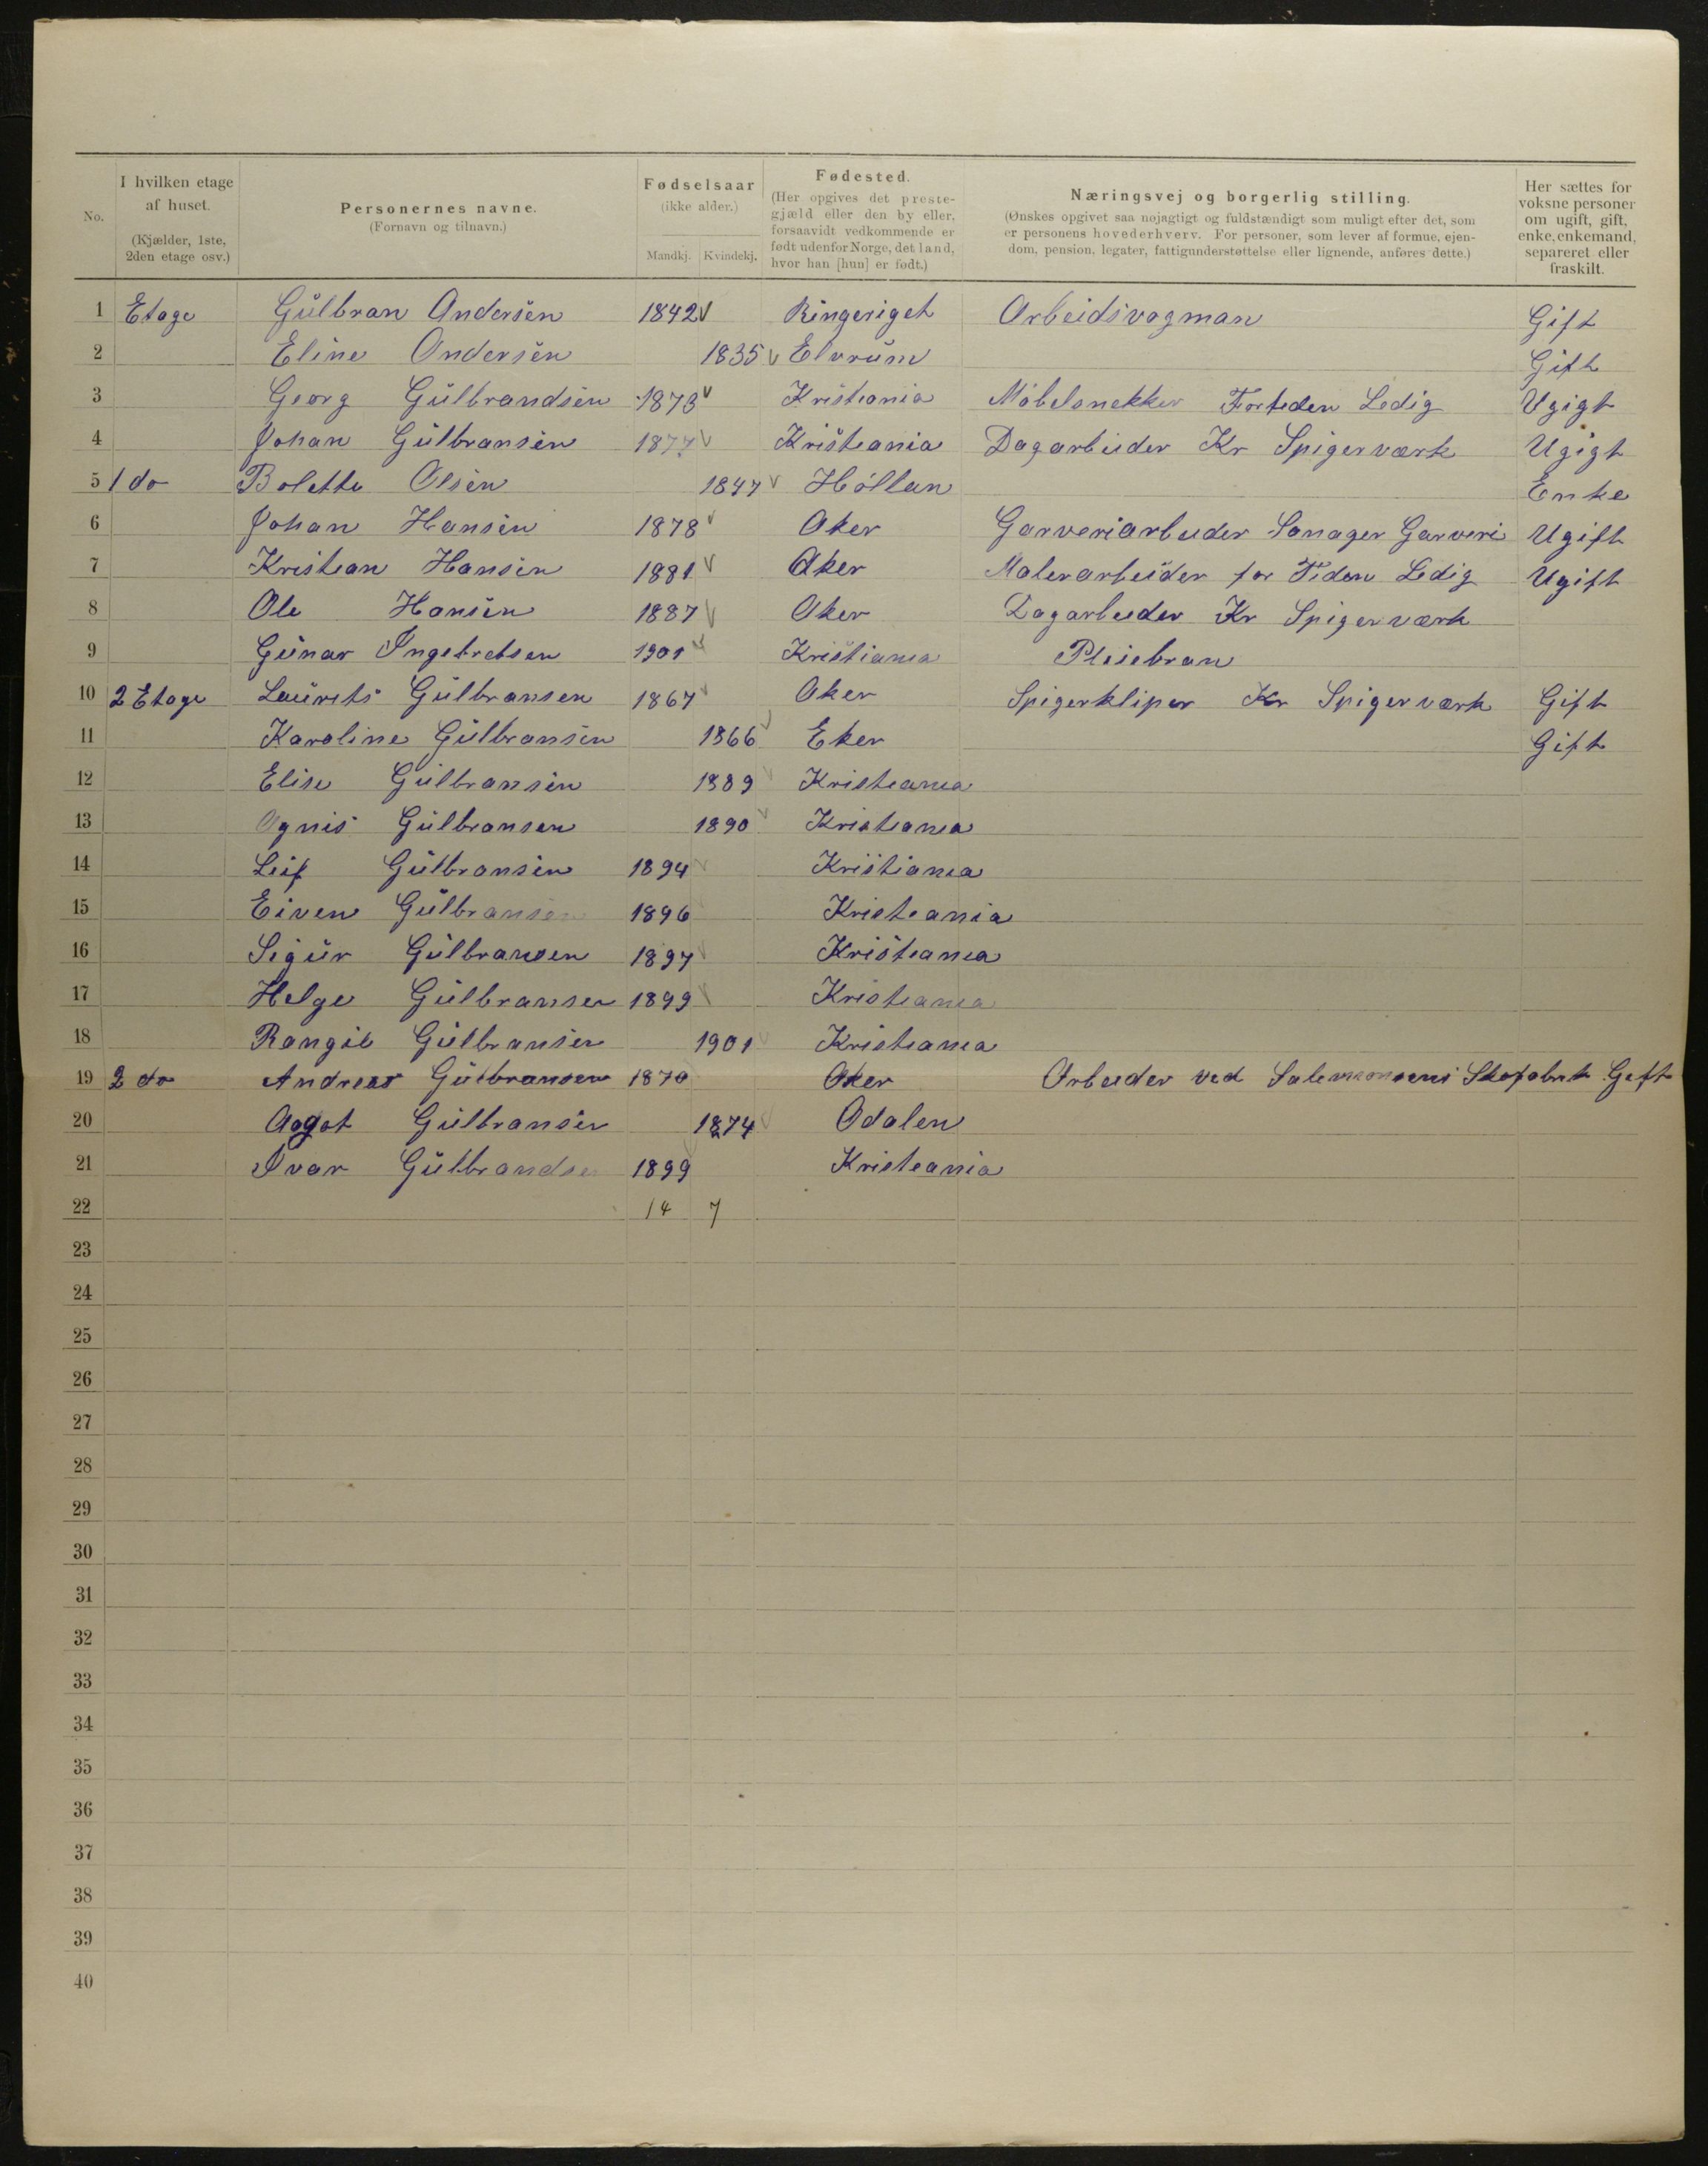 No. | I hvilken etage af huset. (Kjælder, 1ste, 2den etage osv.) | Personernes navne. (Fornavn og tilnavn.) | Fødselsaar (ikke alder.) Mandkj. | Kvindekj. | Fødested. (Her opgives det prestegjæld eller den by eller, forsaavidt vedkommende er født udenfor Norge, det land, hvor han [hun] er født.) | Næringsvej og borgerlig stilling. (Ønskes opgivet saa nøjagtigt og fuldstændigt som muligt efter det, som er personens hovederhverv. For personer, som lever af formue, ejendom, pension, legater, fattigunderstøttelse eller lignende, anføres dette.) | Her sættes for voksne personer om ugift, gift, enke, enkemand, separeret eller fraskilt.
1 Etage Gulbran Andersen 1842 Ringeriget Arbeidsvogman Gift
2 Eline Andersen 1835 Elvrum Gift
3 Georg Gulbrandsen 1873 Kristiania Möbelsnekker Fortiden Ledig Ugigt
4 Johan Gulbransen 1877 Kristiania Dagarbeider Kr Spigerværk Ugigt
5 1 do Bolette Olsen 1847 Höllan Enke
6 Johan Hansen 1878 Aker Garveriarbeider Garveri Ugift
7 Kristian Hansen 1881 Aker Malerarbeider for Tiden Ledig Ugift
8 Ole Hansen 1887 Aker Dagarbeider Kr Spigerværk
9 Gunar Ingebretsen 1901 Kristiania Pleiebran
10 2 Etage Laurits Gulbransen 1867 Aker Spigerkliper Kr Spigerværk Gift
11 Karoline Gulbransen 1866 Eker Gift
12 Elise Gulbransen 1889 Kristiania
13 Agnis Gulbransen 1890 Kristiania
14 Leif Gulbransen 1894 Kristiania
15 Eiven Gulbransen 1896 Kristiania
16 Sigur Gulbransen 1897 Kristiania
17 Helge Gulbransen 1899 Kristiania
18 Rangil Gulbransen 1901 Kristiania
19 2 do Andreas Gulbransen 1870 Aker Arbeider ved Salemonsens Skofabrik Gift
20 Aagot Gulbransen 1874 Odalen
21 Ivar Gulbrandsen 1899 Kristiania
22 14 7
23
24
25
26
27
28
29
30
31
32
33
34
35
36
37
38
39
40